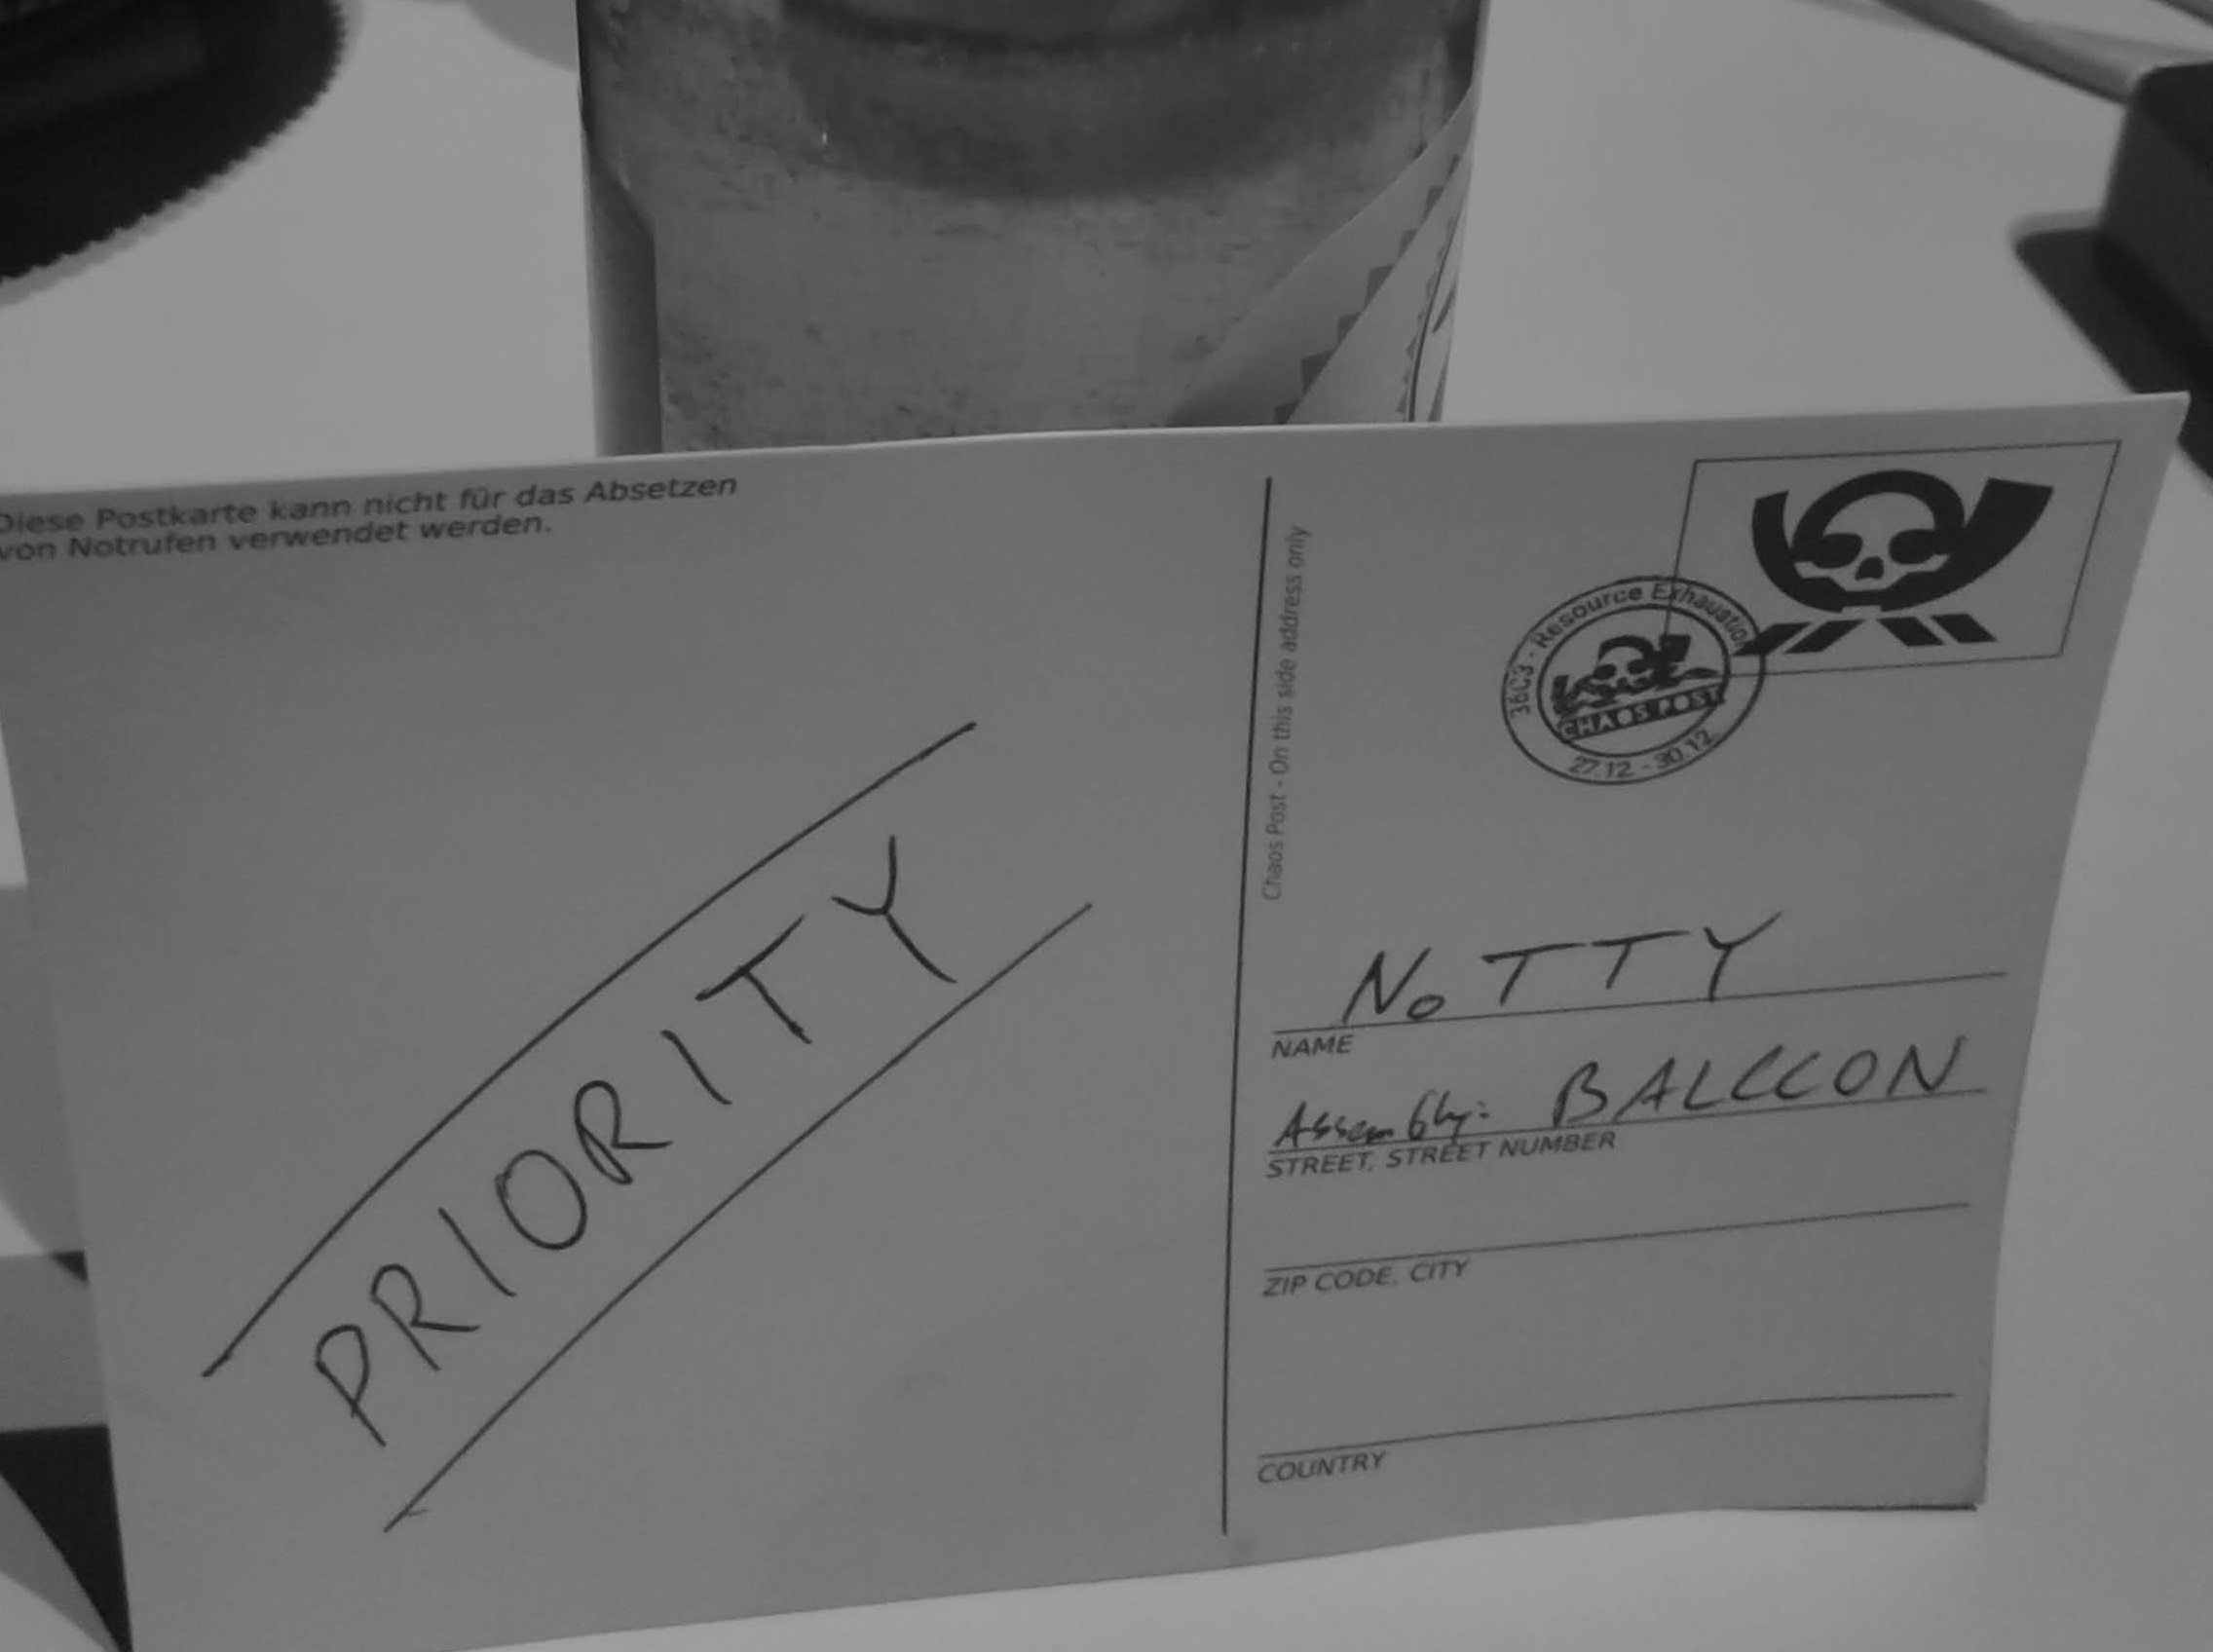 Diese Postkarte kann nicht für das Absetzen
von Notrufen verwendet werden.
PRIORITY
Chaos Post - On this side address only
36C3 - Resource Exhaustion
CHAOS POST
27.12 - 30.12
NoTTY
NAME
Assembly: BALCCON
STREET, STREET NUMBER
ZIP CODE, CITY
COUNTRY